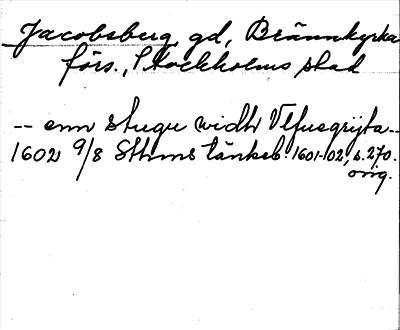 Jacobsberg, gd, Brännkyrka
förs., Stockholms stad
-- enn stugu widh Vlfusgrijta --
1602 9/8 Sthms tänkeb. 1601-02, s. 270.
orig.